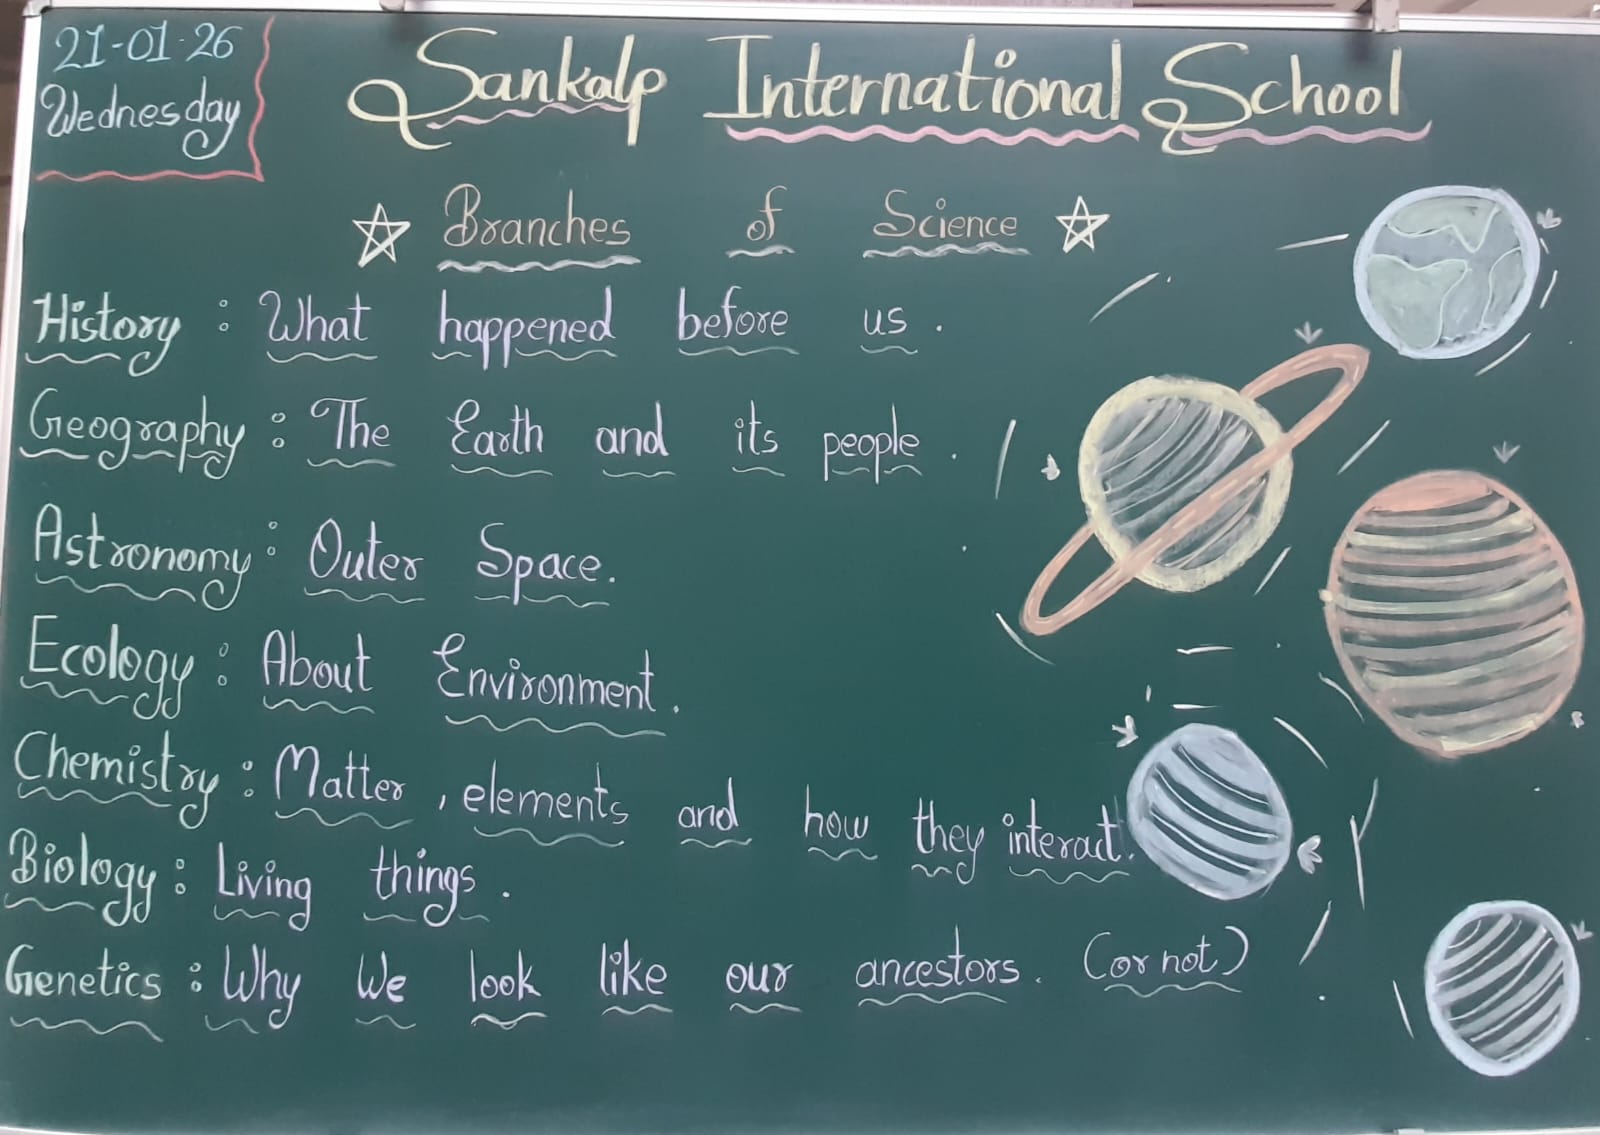 21-01-26
Wednesday
Sankalp International School
Branches of Science
History : What happened before us .
Geography : The Earth and its people .
Astronomy : Outer Space.
Ecology : About Environment .
Chemistry : Matter , elements and how they interact.
Biology : Living things .
Genetics : Why We look like our ancestors. (or not)